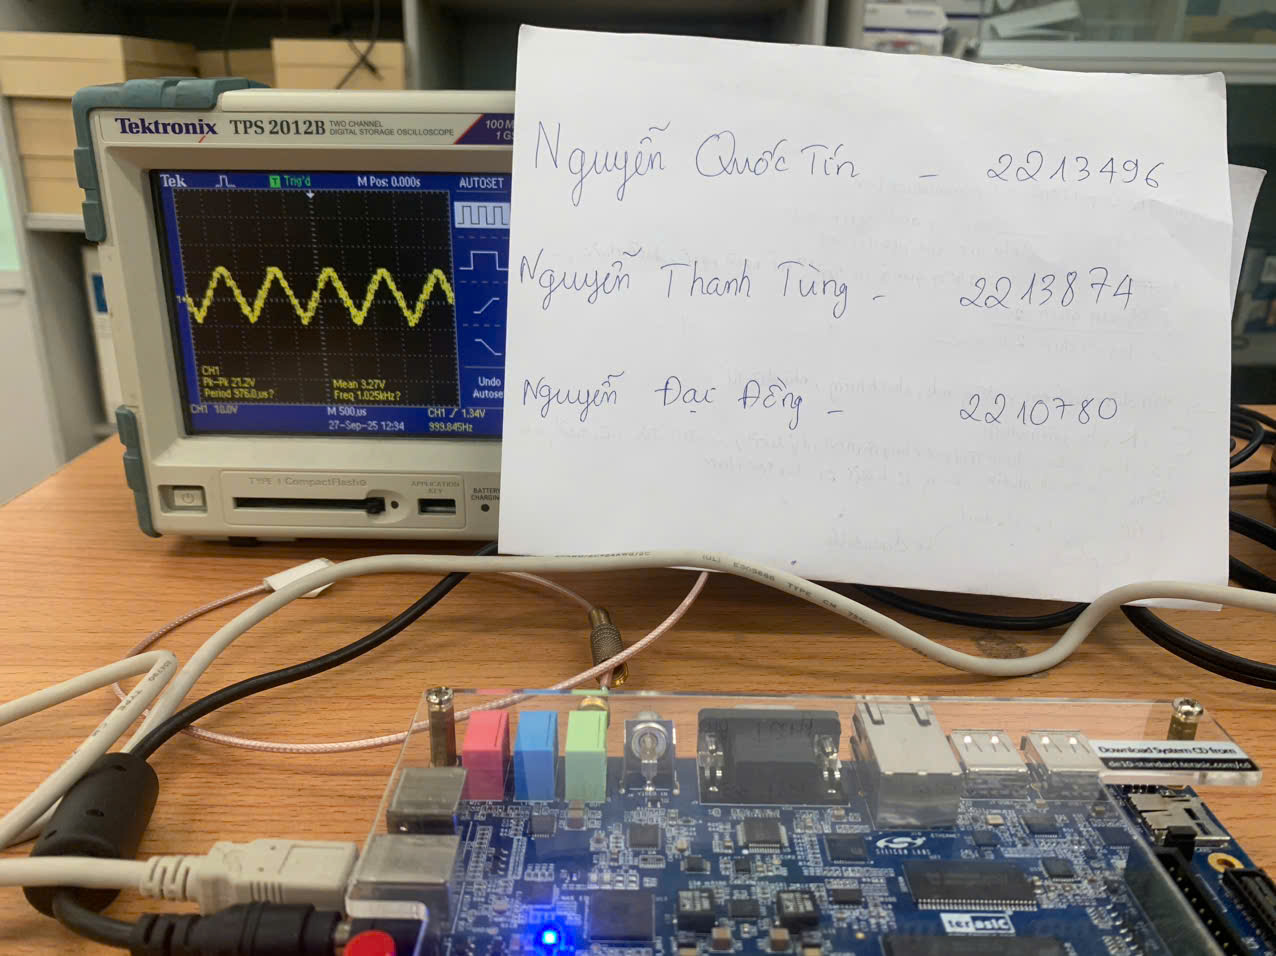 Tektronix TPS 2012B TWO CHANNEL DIGITAL STORAGE OSCILLOSCOPE 100 M
1 GS
Tek Trig'd M Pos: 0.000s AUTOSET
1
CH1
Pk-Pk 21.2V Mean 3.27V
Period 976.0µs? Freq 1.025kHz?
Undo
Autoset
CH1 10.0V M 500µs CH1 1.34V
27-Sep-25 12:34 999.845Hz
TYPE I CompactFlash®
APPLICATION KEY
BATTERY CHARGING
Nguyễn Quốc Tín - 2213496
Nguyễn Thanh Tùng - 2213874
Nguyễn Đạc Đồng - 2210780
(UL) E305686 TYPE CM 75°C
VIDEO IN
Download System CD from
de10-standard.terasic.com/cd
SILICON LABS
terasIC